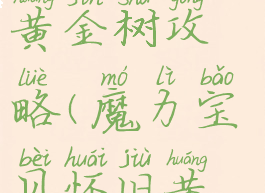 huáng jīn shù gōng
黄金树攻
lüè mó lì bǎo
略(魔力宝
bèi huái jiù huáng
贝怀旧黄